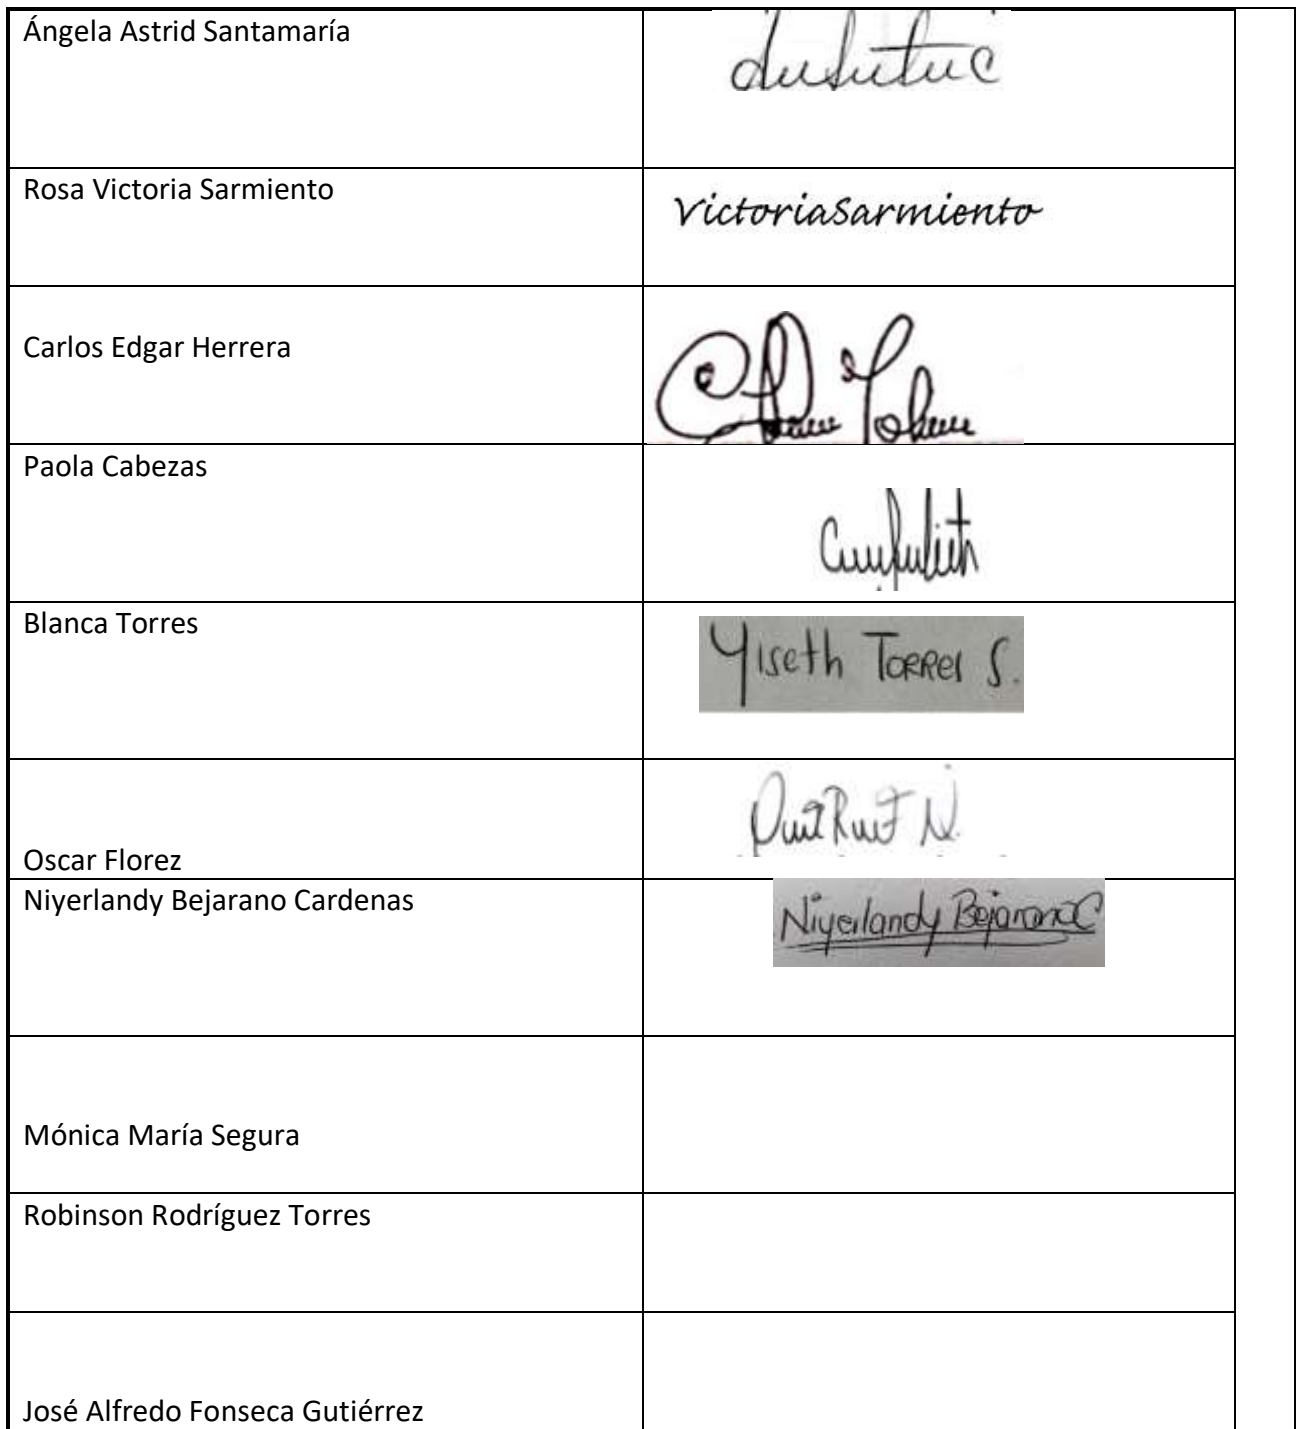 Ángela Astrid Santamaría
Rosa Victoria Sarmiento
VictoriaSarmiento
Carlos Edgar Herrera
Paola Cabezas
Blanca Torres
Yiseth Torres S.
Oscar Florez
Niyerlandy Bejarano Cardenas
Niyerlandy Bejarano C
Mónica María Segura
Robinson Rodríguez Torres
José Alfredo Fonseca Gutiérrez